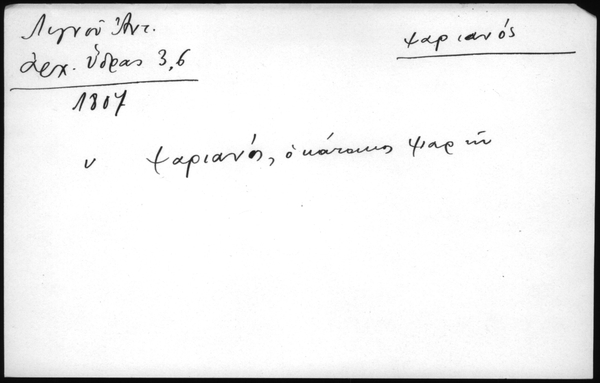 Λιγνοῦ Ἀντ.
ἀρχ. Ὕδρας 3,6
1807
ψαριανός
ν ψαριανός, ὁ κάτοικος Ψαρῶν